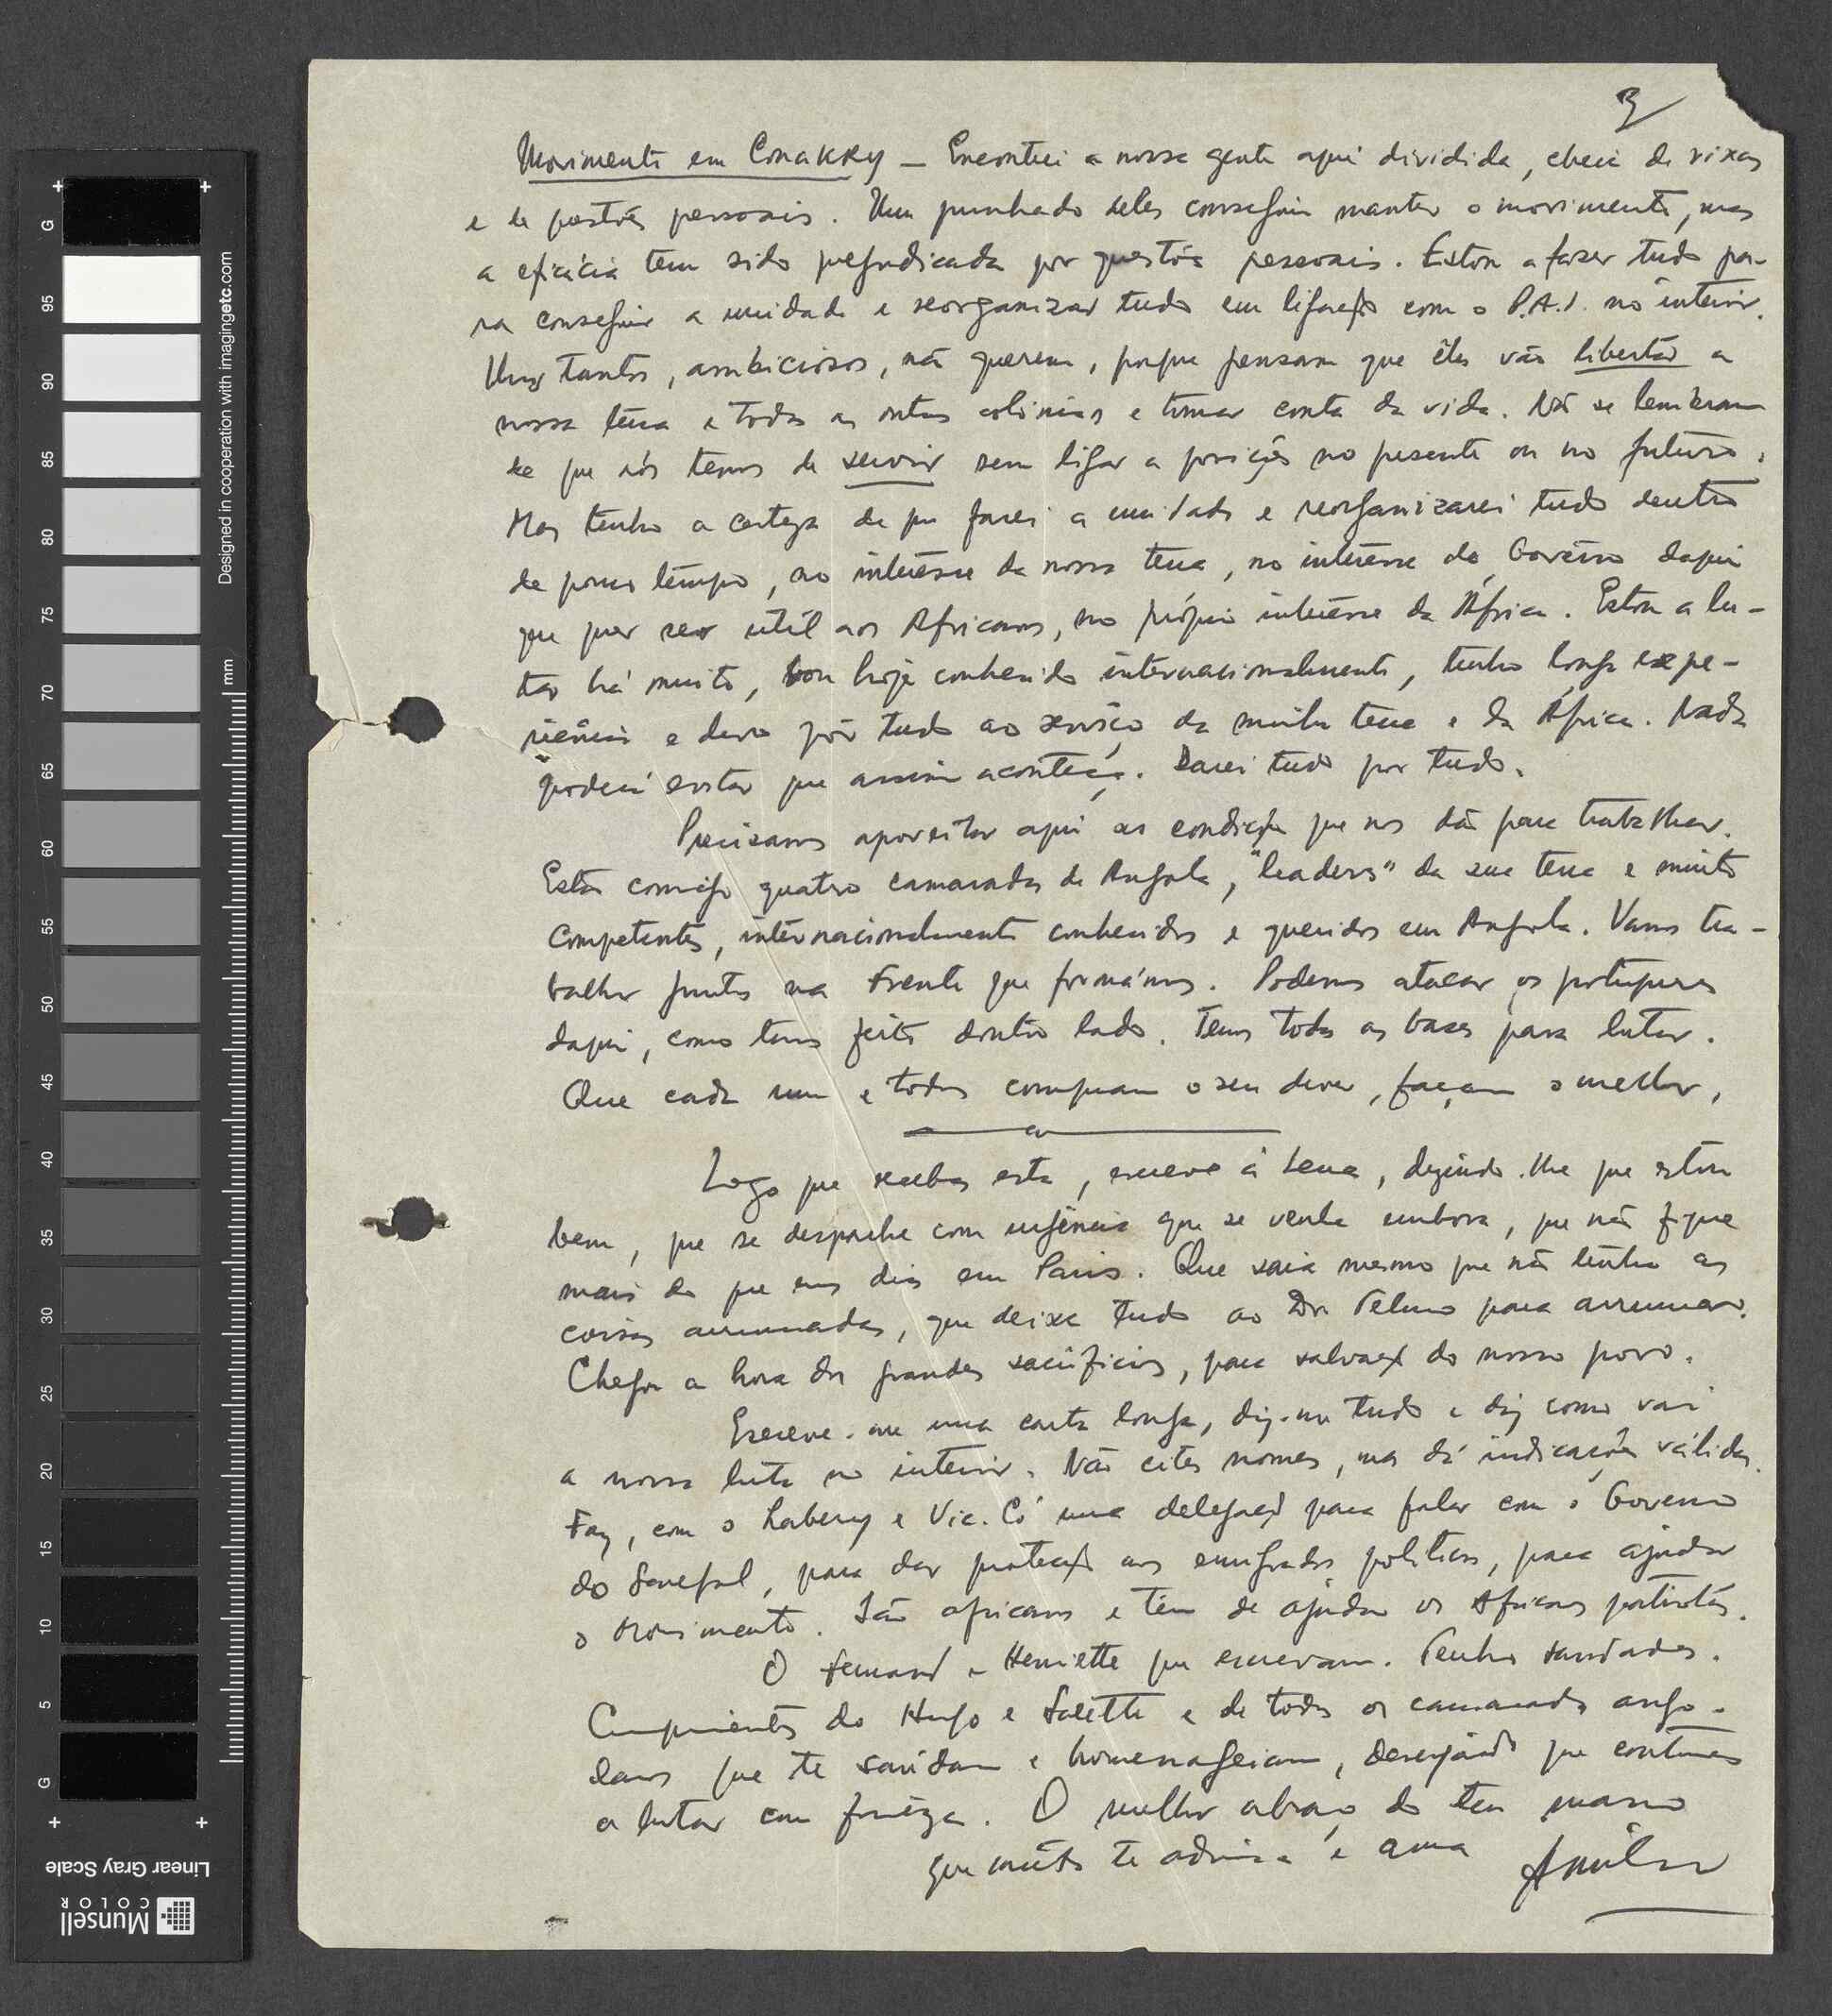 3
Movimento em Conakry — Encontrei a nossa gente aqui dividida, cheia de rixas
e de questões pessoais. Um punhado deles conseguiu manter o movimento, mas
a eficácia tem sido prejudicada por questões pessoais. Estou a fazer tudo pa-
ra conseguir a unidade e reorganizar tudo em ligação com o P.A.I. no interior.
Uns tantos, ambiciosos, não querem, porque pensam que êles vão libertar a
nossa terra e todas as outras colónias e tomar conta da vida. Não se lembram
de que nós temos de servir sem ligar a posições no presente ou no futuro.
Mas tenho a certeza de que farei a unidade e reorganizarei tudo dentro
de pouco tempo, no interêsse da nossa terra, no interêsse do Govêrno daqui
que quer ser útil aos Africanos, no próprio interêsse da África. Estou a lu-
tar há muito, sou hoje conhecido internacionalmente, tenho longa expe-
riência e devo pôr tudo ao serviço da minha terra e da África. Nada
poderá evitar que assim aconteça. Darei tudo por tudo.
Precisamos aproveitar aqui as condições que nos dão para trabalhar.
Estão comigo quatro camaradas de Angola, "leaders" da sua terra e muito
competentes, internacionalmente conhecidos e queridos em Angola. Vamos tra-
balhar juntos na Frente que formámos. Podemos atacar os portugueses
daqui, como temos feito doutro lado. Temos todas as bases para lutar.
Que cada um e todos cumpram o seu dever, façam o melhor.
Logo que recebas esta, escreve à Lena, dizendo-lhe que estou
bem, que se despache com urgência que se venha embora, que não fique
mais do que uns dias em Paris. Que saia mesmo que não tenha as
coisas arrumadas, que deixe tudo ao Dr. Telmo para arrumar.
Chegou a hora dos grandes sacrifícios, para salvação do nosso povo.
Escreve-me uma carta longa, diz-me tudo e diz como vai
a nossa luta no interior. Não cites nomes, mas dá indicações válidas.
Faz, com o Labery e Vic. Có uma delegação para falar com o Governo
do Senegal, para dar protecção aos emigrados políticos, para ajudar
o movimento. São africanos e têm de ajudar os Africanos patriotas.
O Fernand e Henriette que escrevam. Tenho saudades.
Cumprimentos do Hugo e e de todos os camaradas ango-
lanos que te saúdam e homenageiam, desejando que continues
a lutar com firmeza. O melhor abraço do teu mano
que muito te admira e ama Amílcar
Designed in cooperation with imagingetc.com
mm
G
95
90
85
80
75
70
65
60
55
50
45
40
35
30
25
20
15
10
5
G
Linear Gray Scale
Munsell
COLOR